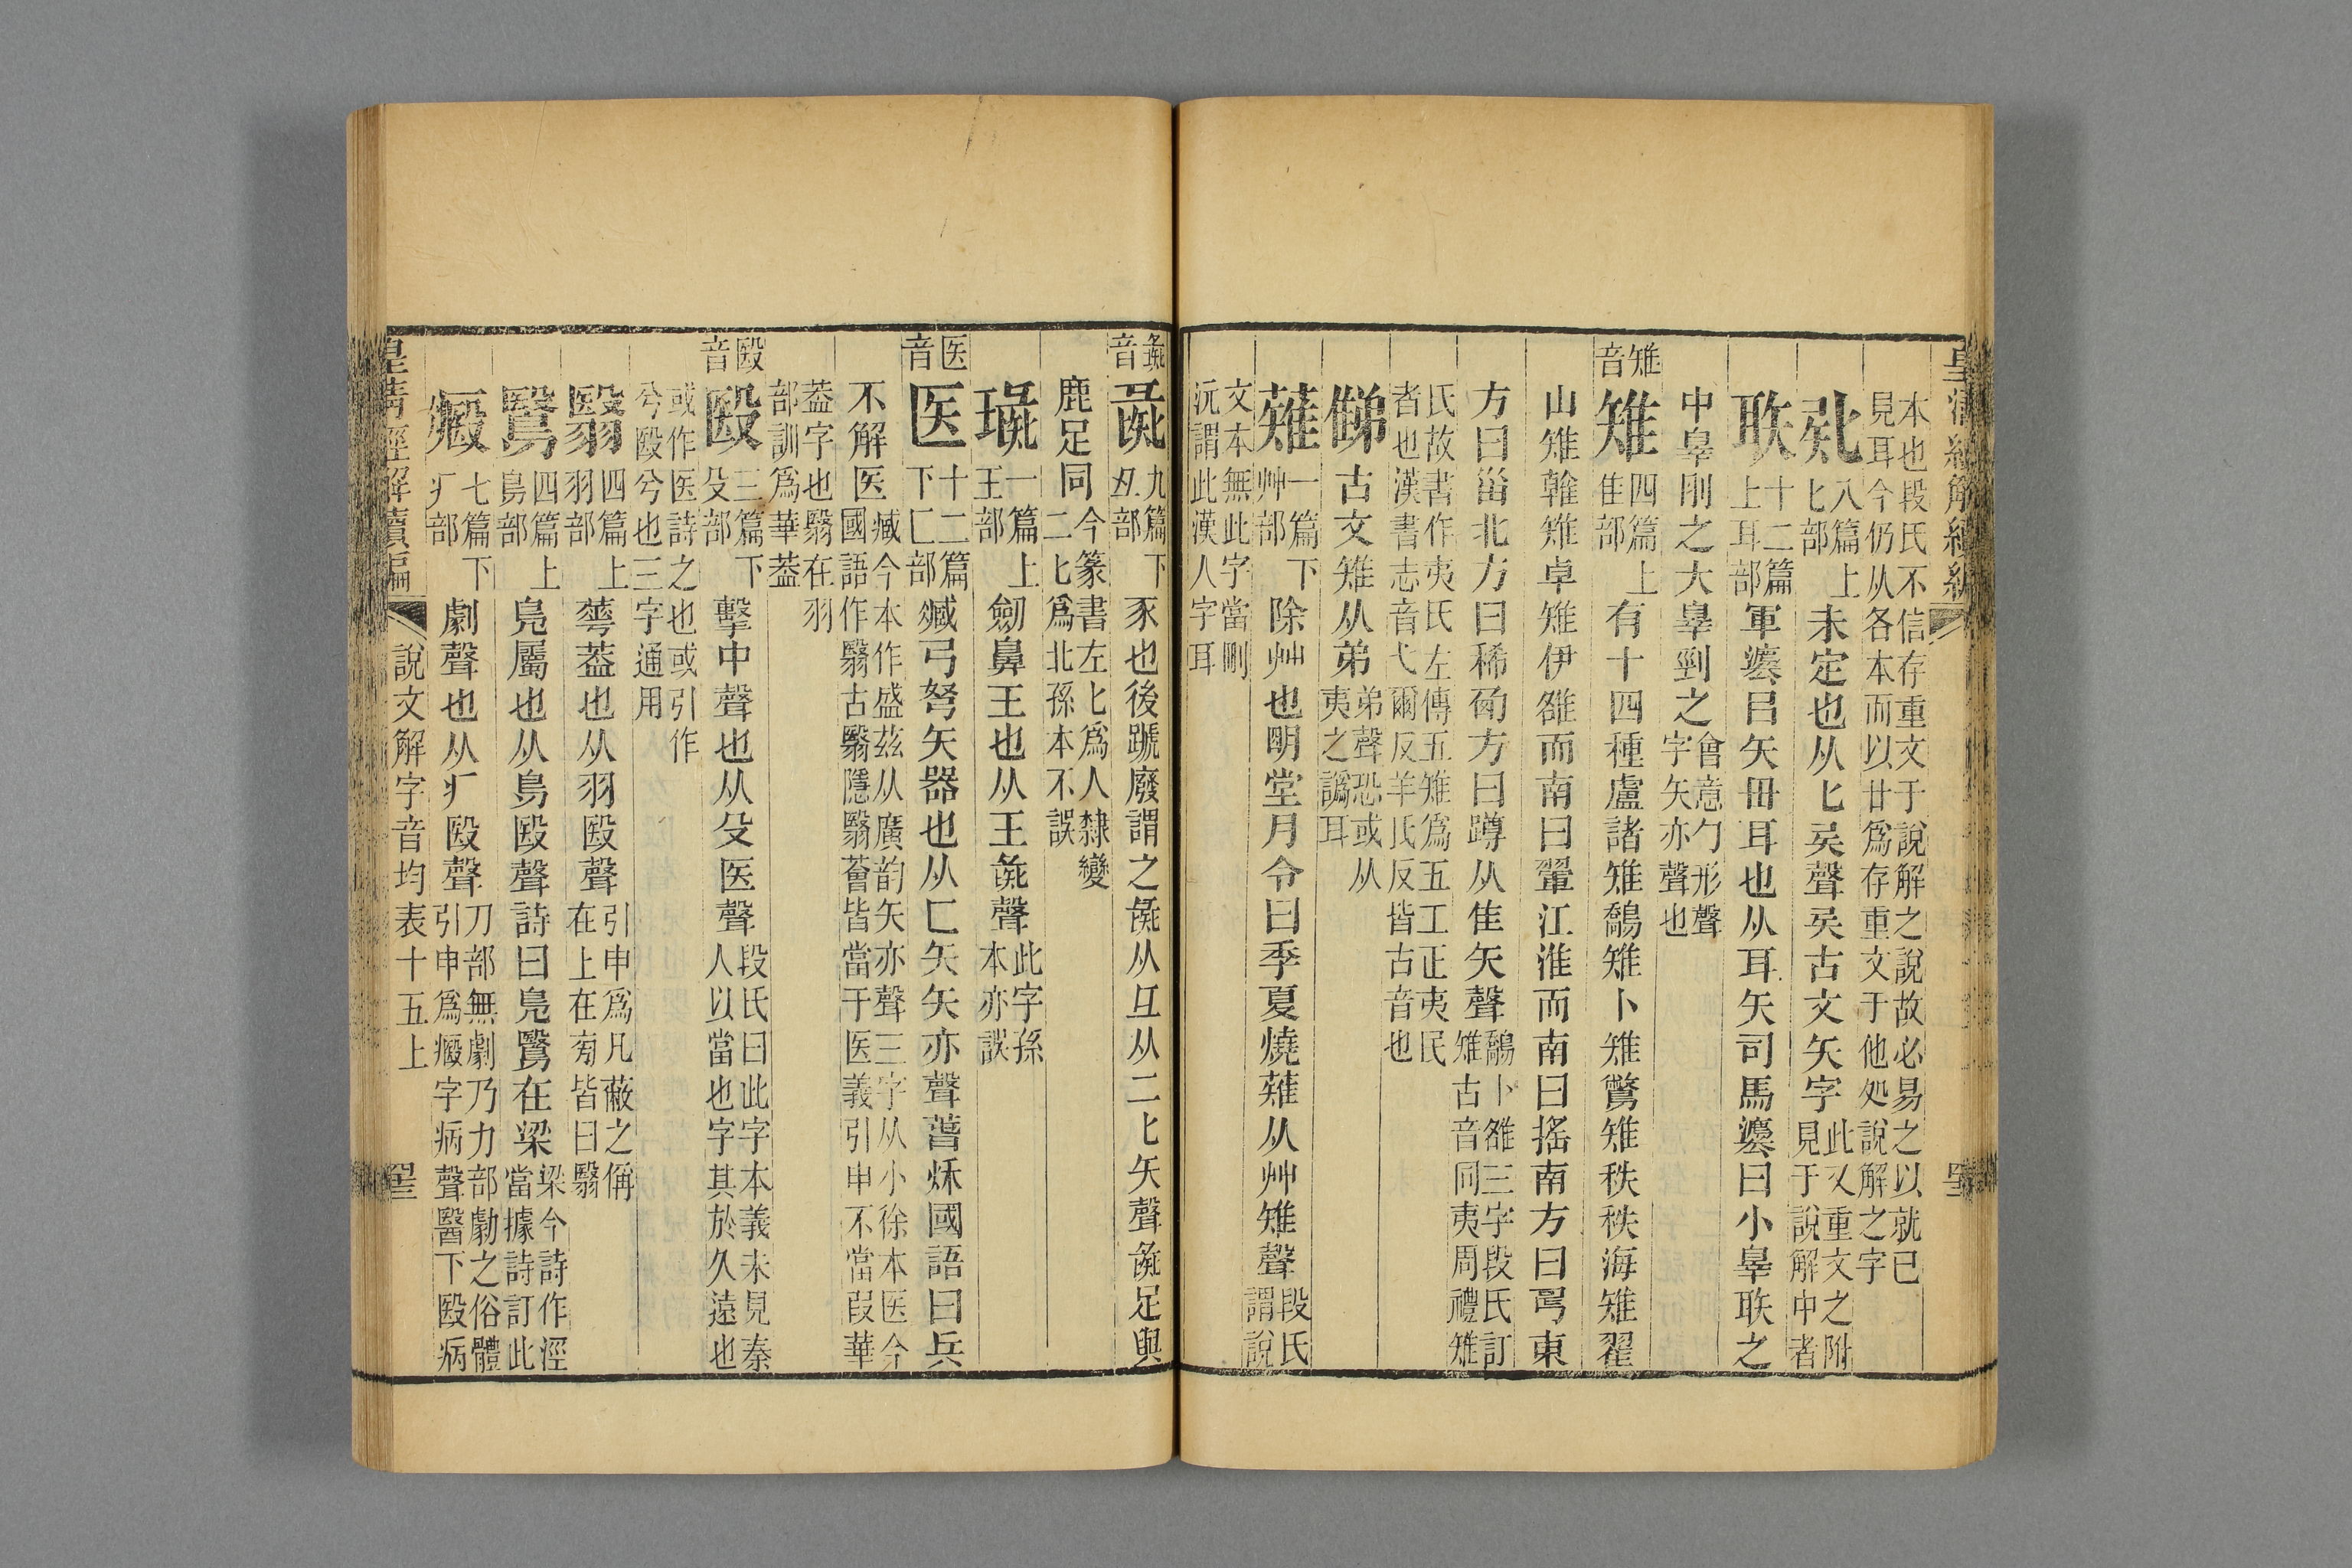 本也段氏不信存重文于說解之說故必易之以就已
見耳今仍从各本而以廿爲存重文于他処說解之字
𠤕八篇上匕部未定也从匕𠤗聲𠤗古文矢字此又重文之附見于說解中者
聅十二篇上耳部軍灋㠯矢毌耳也从耳矢司馬灋曰小辠聅之
中辠刖之大辠剄之會意勹形聲字矢亦聲也
雉音
雉四篇上隹部有十四種盧諸雉鷸雉卜雉鷩雉秩秩海雉翟
山雉翰雉卓雉伊雒而南曰翬江淮而南曰搖南方曰𢏚東
方曰甾北方曰稀西方曰蹲从隹矢聲鷸卜雒三字段氏訂雉古音同夷周禮雉
氏故書作夷氏左傳五雉爲五工正夷民者也漢書志音弋爾反羊氏反皆古音也
𨾦古文雉从弟弟聲恐或从夷之譌耳
薙一篇下艸部除艸也明堂月令曰季夏燒薙从艸雉聲段氏謂說
文本無此字當刪沅謂此漢人字耳
彘音
彘九篇下彑部豕也後蹏廢謂之彘从彑从二匕矢聲彘足與
鹿足同今篆書左匕爲人隸變二匕爲北孫本不誤
璏一篇上王部劒鼻王也从王彘聲此字孫本亦誤
医音
医十二篇下匚部臧弓弩矢器也从匚矢矢亦聲蒈烌國語曰兵
不解医臧今本作盛茲从廣韵矢亦聲三字从小徐本医今國語作翳古翳隱翳薈皆當于医義引申不當叚華
葢字也翳在羽部訓爲華葢
殹音
殹三篇下殳部擊中聲也从殳医聲段氏曰此字本義未見秦人以當也字其於久遠也
或作医詩之也或引作兮殹兮也三字通用
翳四篇上羽部蕚葢也从羽殹聲引申爲凡蔽之偁在上在菊皆曰翳
鷖四篇上鳥部鳧屬也从鳥殹聲詩曰鳧鷖在梁梁今詩作涇當據詩訂此
瘱七篇下疒部劇聲也从疒殹聲刀部無劇乃力部勮之俗體引申爲瘱字病聲醫下殹病
皇淸經解續編 說文解字音均表十五上